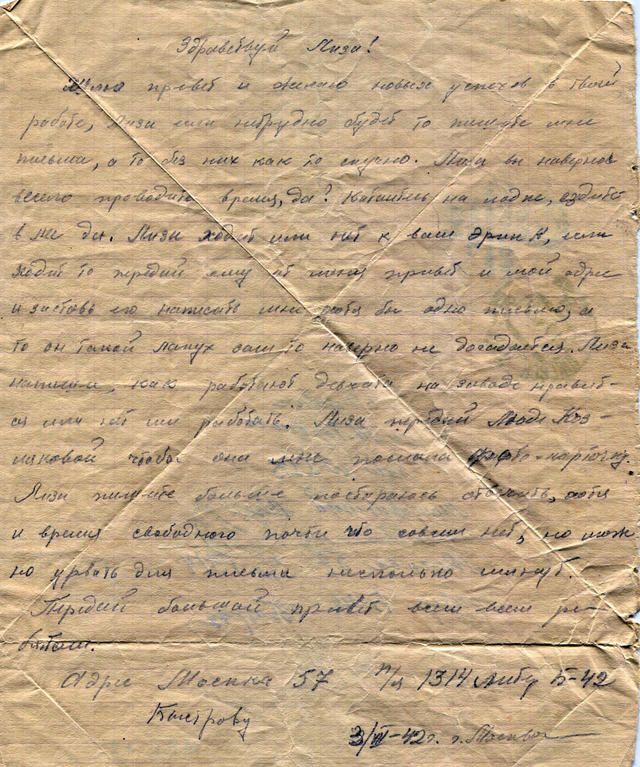 Здравствуй Лиза!
Шлю привет и желаю новых успехов в твоей
работе, Лиза если нетрудно будет то пишите мне
письма, а то без них как то скучно. Лиза вы наверно
весело проводите время, да? Катаетесь на лодке, ездите
в да. Лиза ходит или нет к вам Эрик А, если
ходит то передай ему от меня привет и мой адрес
и заставь его написать мне хотя бы одно письмо, а
то он такой лапух сам то наверно не догадается. Лиза
напиши, как работают девчата на заводе нравит-
ся или нет им работать. Лиза передай Люде Коз-
лаковой чтобы она мне послала фото-карточку.
Лиза пишите больше постараюсь ответить, хотя
и время свободного почти что совсем нет, но мож
но урвать для письма несколько минут.
Передай большой привет всем всем ре-
бятам.
Адрес Москва 57 п/я 1314 Б-42
Быстрову
3/VII-42г. г. Москва